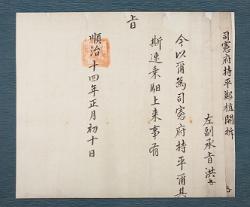 司憲府持平鄭植開拆
左副承旨洪
今以爾爲司憲府持平爾其
斯速乘馹上来事有
旨
順治十四年正月初十日